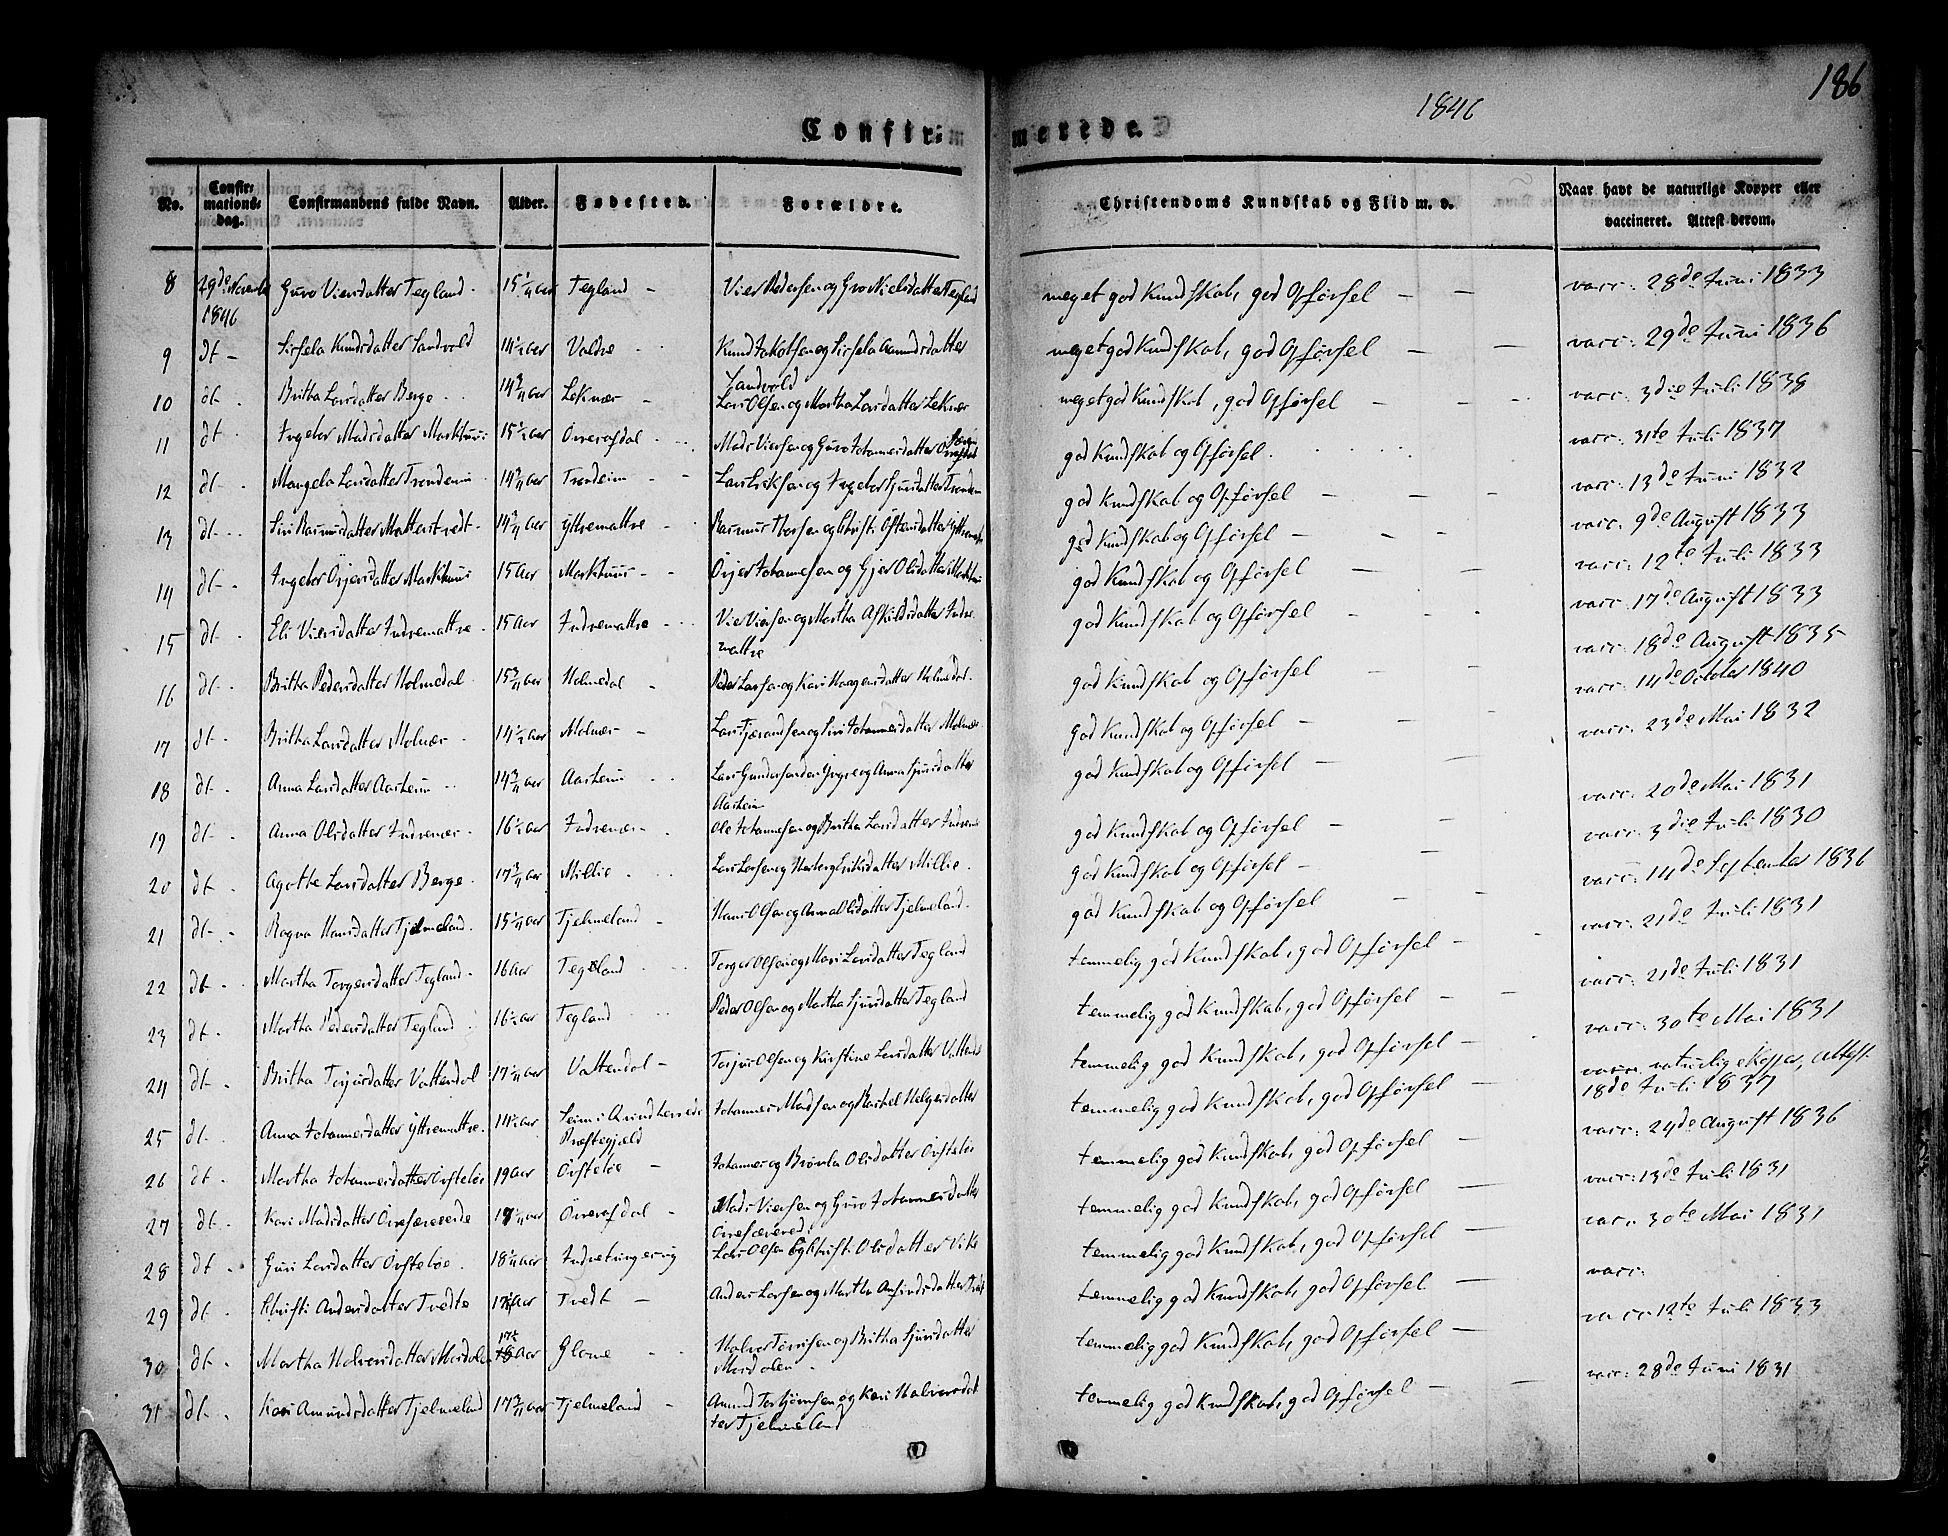 186
1846
Confirmerede.
No. Confir-mations-dag. Confirmandens fulde Navn. Alder. Fødested. Forældre. Christendoms Kundskab og Flid m. v. Naar havt de naturlige Kopper eller vaccineret. Attest derom.
8 29de November 1846 Guro Viersdatter Tegland 15 1/4 aar Tegland Vier Pedersen og Guro Nielsdatter Tegland meget god Kundskab, god Opførsel vacc: 28de Juni 1833
9 dt Sirsela Knudsdatter Sandvold 14 1/2 aar Valdre Knud Jakobsen og Sirsela Aamundsdatter Sandvold meget god Kundskab, god Opførsel vacc: 29de Juni 1836
10 dt Britha Larsdatter Berge 14 3/4 aar Leknær Lars Olsen og Martha Larsdatter Leknær meget god Kundskab, god Opførsel vacc: 3die Juli 1838
11 dt Ingebor Madsdatter Markhuus 15 1/2 aar Övreafdal Mads Viersen og Guro Johannesdatter god Kundskab og Opførsel vacc: 31te Juli 1837
12 dt Mangela Larsdatter Trondeim 14 3/4 aar Trondeim Lars Eriksen og Ingebor Sjursdatter Trondeim god Kundskab og Opførsel vacc: 13de Juni 1832
13 dt Siri Rasmusdatter Mattertvedt 14 3/4 aar Yttremattre Rasmus Thorsen og Christi Östensdatter Yttremattre god Kundskab og Opførsel vacc: 9de August 1833
14 dt Ingebor Örjersdatter Markhuus 15 Aar Markhuus Örjer Johannesen og Gjer Olsdatter Markhuus god Kundskab og Opførsel vacc: 12te Juli 1833
15 dt Eli Viersdatter Indremattre 15 Aar Indremattre Vier Viersen og Martha Askildsdatter Indremattre god Kundskab og Opførsel vacc: 17de August 1833
16 dt Britha Pedersdatter Holmedal 15 3/4 aar Holmedal Peder Larsen og Kari Haagensdatter Holmedal god Kundskab og Opførsel vacc: 18de August 1835
17 dt Britha Larsdatter Molnær 14 1/2 aar Molnær Lars Tjerandsen og Siri Johannesdatter Molnær god Kundskab og Opførsel vacc: 14de October 1840
18 dt Anna Larsdatter Aarheim 14 3/4 aar Aarheim Lars Gundersen den Yngre og Anna Sjursdatter Aarheim god Kundskab og Opførsel vacc: 23de Mai 1832
19 dt Anna Olsdatter Indrenær 16 1/2 aar Indrenær Ole Johannesen og Britha Larsdatter Indrenær god Kundskab og Opførsel vacc: 20de Mai 1831
20 dt Agathe Larsdatter Berge 17 3/4 aar Millie Lars Larsen og Herborg Eriksdatter Millie god Kundskab og Opførsel vacc: 3die Juli 1830
21 dt Ragna Hansdatter Tjelmeland 15 1/4 aar Tjelmeland Hans Olsen og Anna Olsdatter Tjelmeland god Kundskab og Opførsel vacc: 14de September 1836
22 dt Martha Torgersdatter Tegland 16 aar Tegland Torger Olsen og Mari Larsdatter Tegland temmelig god Kundskab, god Opførsel vacc: 21de Juli 1831
23 dt Martha Pedersdatter Tegland 16 1/2 aar Tegland Peder Olsen og Martha Sjursdatter Tegland temmelig god Kundskab, god Opførsel vacc: 21de Juli 1831
24 dt Britha Torjusdatter Vattendal 17 1/4 aar Vattendal Torjus Olsen og Kirstine Larsdatter Vattendal temmelig god Kundskab, god Opførsel vacc: 30te Mai 1831
25 dt Anna Johannesdatter Yttremattre 14 1/2 aar Seim i Qvindherreds Præstegjeld Johannes Madsen og Rachel Helgesdatter temmelig god Kundskab, god Opførsel naturlig Kopper, Attest 18de Juli 1837
26 dt Martha Johannesdatter Öisteböe 19 aar Öisteböe Johannes og Brønla Olsdatter Öisteböe temmelig god Kundskab, god Opførsel vacc: 24de August 1836
27 dt Kari Madsdatter Övrefæreveide aar Övreafdal Mads Viersen og Guro Johannesdatter temmelig god Kundskab, god Opførsel vacc: 13de Juli 1831
28 dt Guri Larsdatter Öisteböe 18 1/4 aar Lars Olsen og Christi Olsdatter Vike temmelig god Kundskab, god Opførsel vacc: 30te Mai 1831
29 dt Christi Andersdatter Tvedte aar Tvedt Anders Larsen og Martha Anfindsdatter Tvedt temmelig god Kundskab, god Opførsel vacc:
30 dt Martha Halversdatter Mosdalen 17 1/2 Aar Glome Halver Tørrisen og Britha Sjursdatter Mosdalen temmelig god Kundskab, god Opførsel vacc: 12te Juli 1833
31 dt Kari Amundsdatter Tjelmeland 17 3/4 aar Tjelmeland Amund Torbjørnsen og Kari Halversdatter Tjelmeland temmelig god Kundskab, god Opførsel vacc: 28de Juni 1831